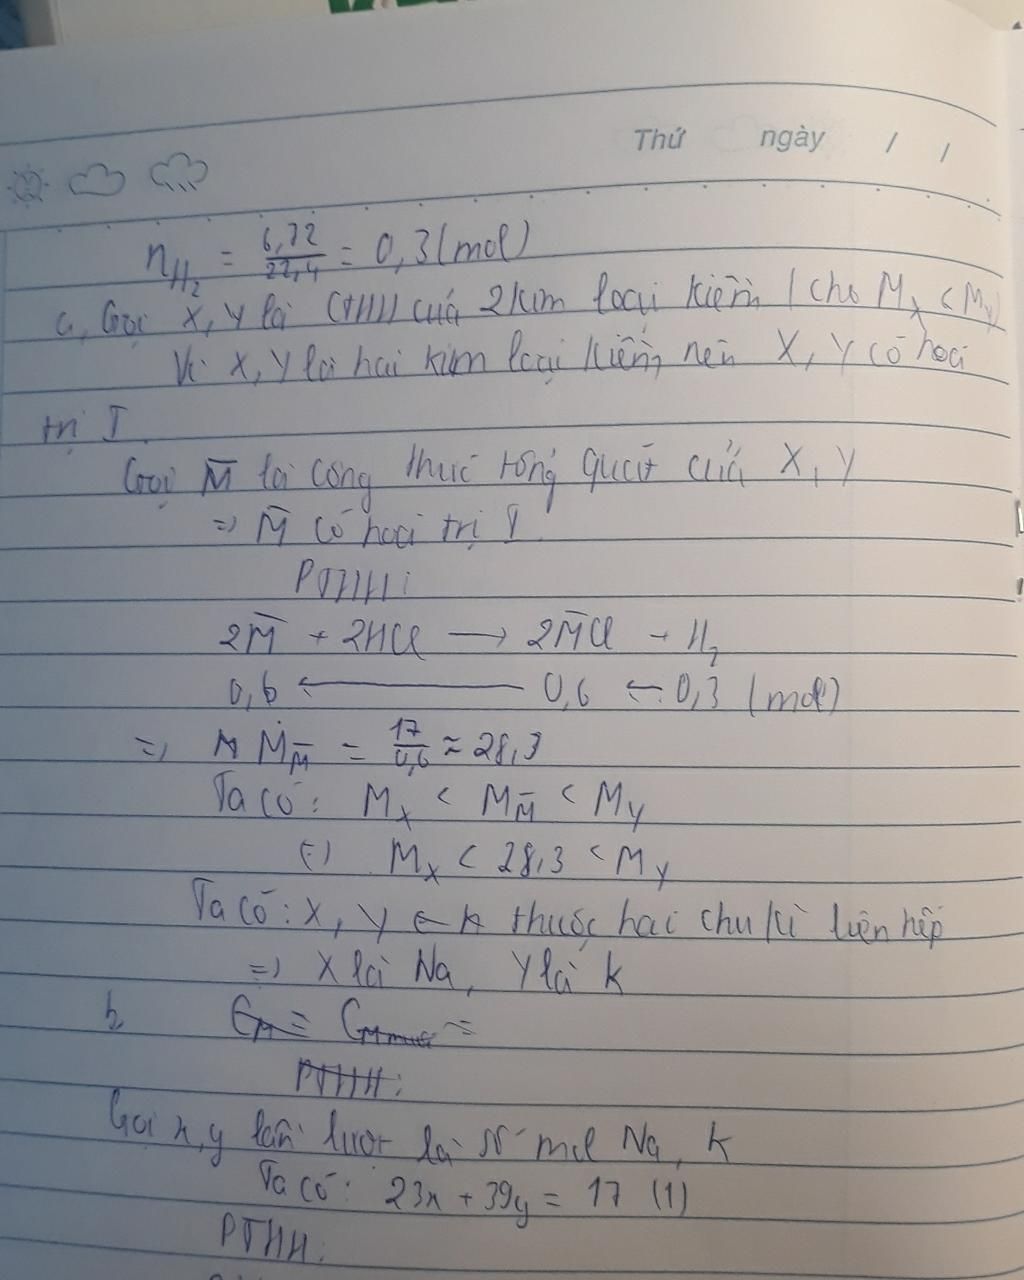 Thứ ngày / /
n_{H_2} = \frac{6,72}{22,4} = 0,3 (mol)
a, Gọi X, Y là CTHH của 2 kim loại kiềm (cho M_X < M_Y)
Vì X, Y là hai kim loại kiềm nên X, Y có hoá
trị I
Gọi \bar{M} là công thức tổng quát của X, Y
=> \bar{M} có hoá trị I
PTHH:
2\bar{M} + 2HCl → 2\bar{M}Cl + H_2
0,6 ← 0,6 ← 0,3 (mol)
=> M_{\bar{M}} = \frac{17}{0,6} ≈ 28,3
Ta có: M_X < M_{\bar{M}} < M_Y
(=) M_X < 28,3 < M_Y
Ta có: X, Y thuộc hai chu kì liên tiếp
=> X là Na, Y là K
b,
PTHH:
Gọi x, y lần lượt là số mol Na, K
Ta có: 23x + 39y = 17 (1)
PTHH: